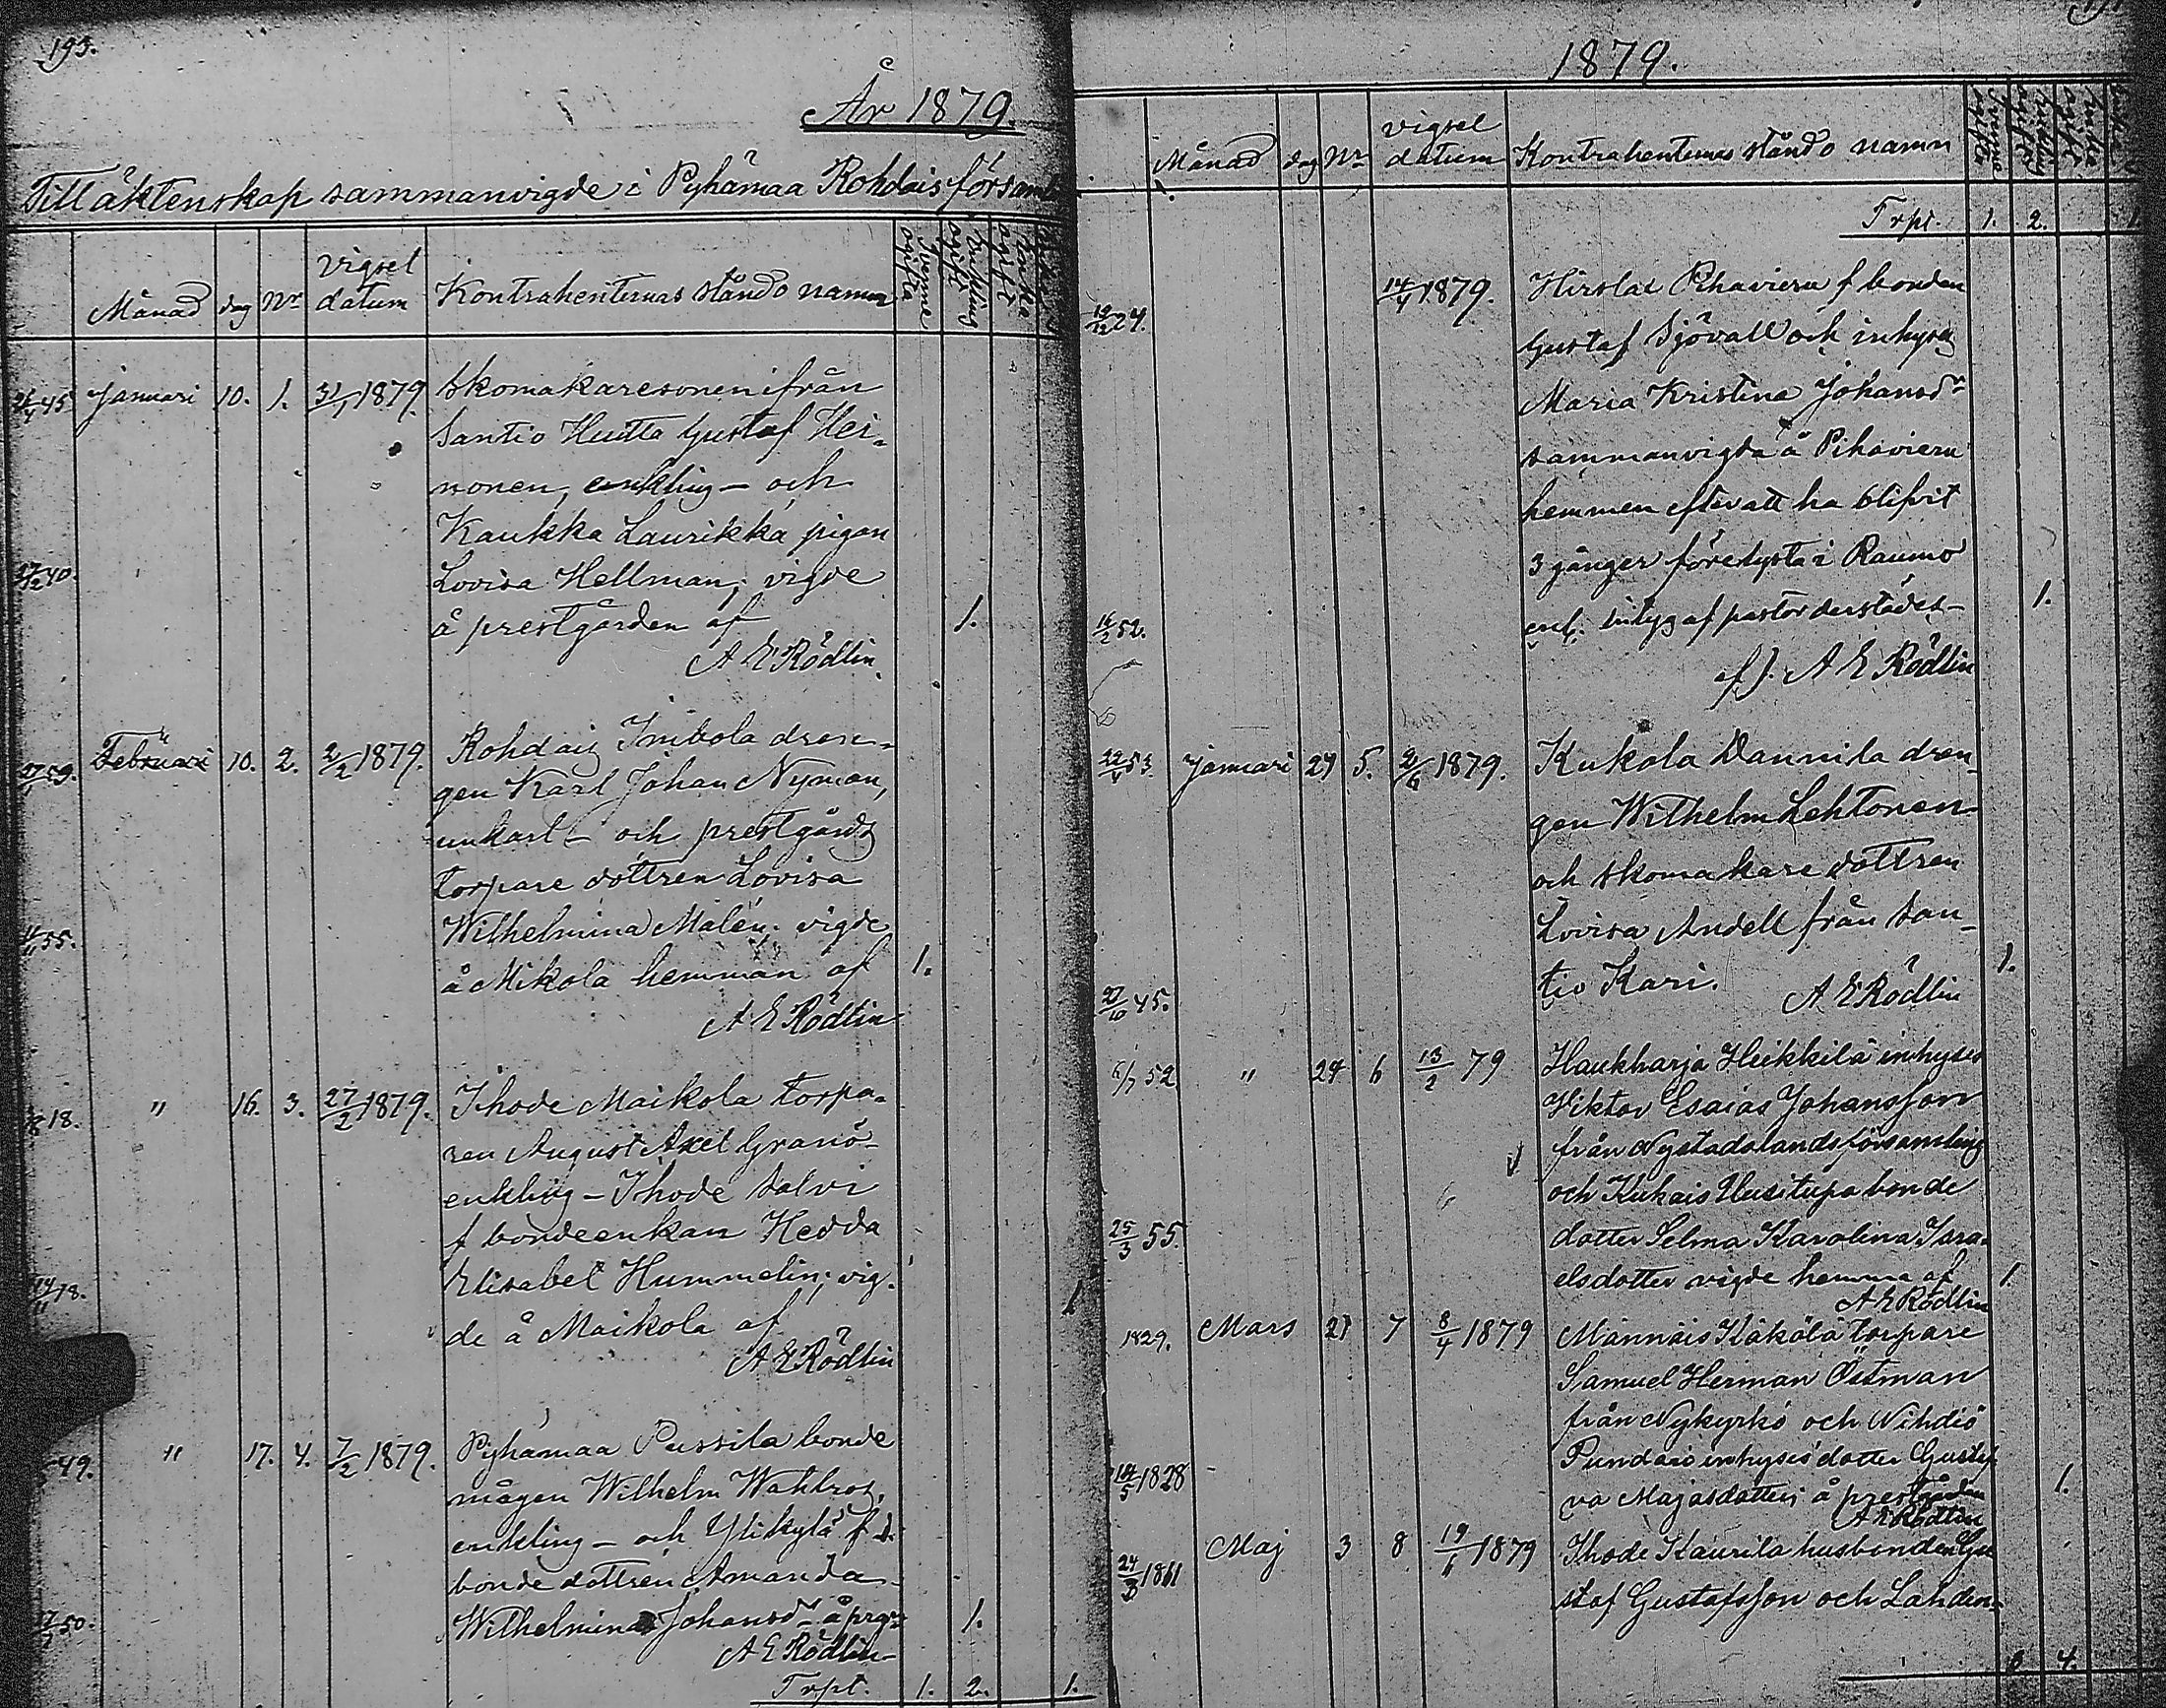 193.
År 1879.
Till äktenskap sammanvigde i Pyhämaa Rohdais församl
Månad dag Nr vigsel datum Kontrahenternas stånd o namn
45 Januari 10. 1. 31/1 1879. Skomakaresonen ifrån
Santio Hutta Gustaf Hei-
nonen, enkling - och
Kaukka Laurikka pigan
40. Lovisa Hellman; vigde
å prestgården af 1.
A E Rödlin.
59. Februari 10. 2. 2/2 1879. Rohdais Mikola dren-
gen Karl Johan Nyman,
unkarl - och prestgårds
torpare dottren Lovisa
55. Wilhelmina Malén; vigde
å Mikola hemman af 1.
A E Rödlin
18. " 16. 3. 27/2 1879. Ihode Maikola torpa-
ren August Axel Granö-
enkling - Ihode Salvi
f bondeenkan Hedda
14/11 18. Elisabet Hummelin; vig- 1
de å Maikola af
A E Rödlin
49. " 17. 4. 7/2 1879. Pyhämaa Pussila bonde
mågen Wilhelm Wahlros,
enkling - och Ylikylä f d.
bonde dottren Amanda
50. Wilhelmina Johansdr å prgn 1.
A E Rödlin
Trpt. 1. 2. 1.
1879.
Månad dag Nr vigsel datum Kontrahenternas stånd o namn
Trpt. 1. 2. 1
19/12 24. 14/4 1879. Hirslax Pihavieru f bonden
Gustaf Sjövall och inhyses
Maria Kristina Johansdr
sammanvigda å Pihavieru
hemmen efter att ha blifvit
3 gånger förelysta i Raumo
16/2 52. enl. intyg af pastor derstädes- 1.
af A E Rödlin
22/4 53. Januari 24 5. 2/6 1879. Kukola Dannila dren-
gen Wilhelm Lehtonen
och skomakare dottren
Lovisa Andell från San-
27/10 45. tio Kari. 1.
A E Rödlin
6/7 52 " 24 6 13/2 79 Haukharja Heikkilä inhyses
Viktor Esaias Johansson
från Nystadslandsförsamling
och Kukais Uusitupa bonde
25/3 55. dotter Selma Karolina Isra-
elsdotter vigde hemma af 1
A E Rödlin
1829. Mars 21 7 8/4 1879 Männäis Käkölä torpare
Samuel Herman Östman
från Nykyrkö och Nihdiö
14/5 1828 Pundars inhyses dotter Gusta
va Majasdotter; å prestgården 1.
A E Rödlin
24/3 1861 Maj 3 8 19/6 1879 Ihode Kaurila husbonden Gu
staf Gustafsson och Lahden-
4.